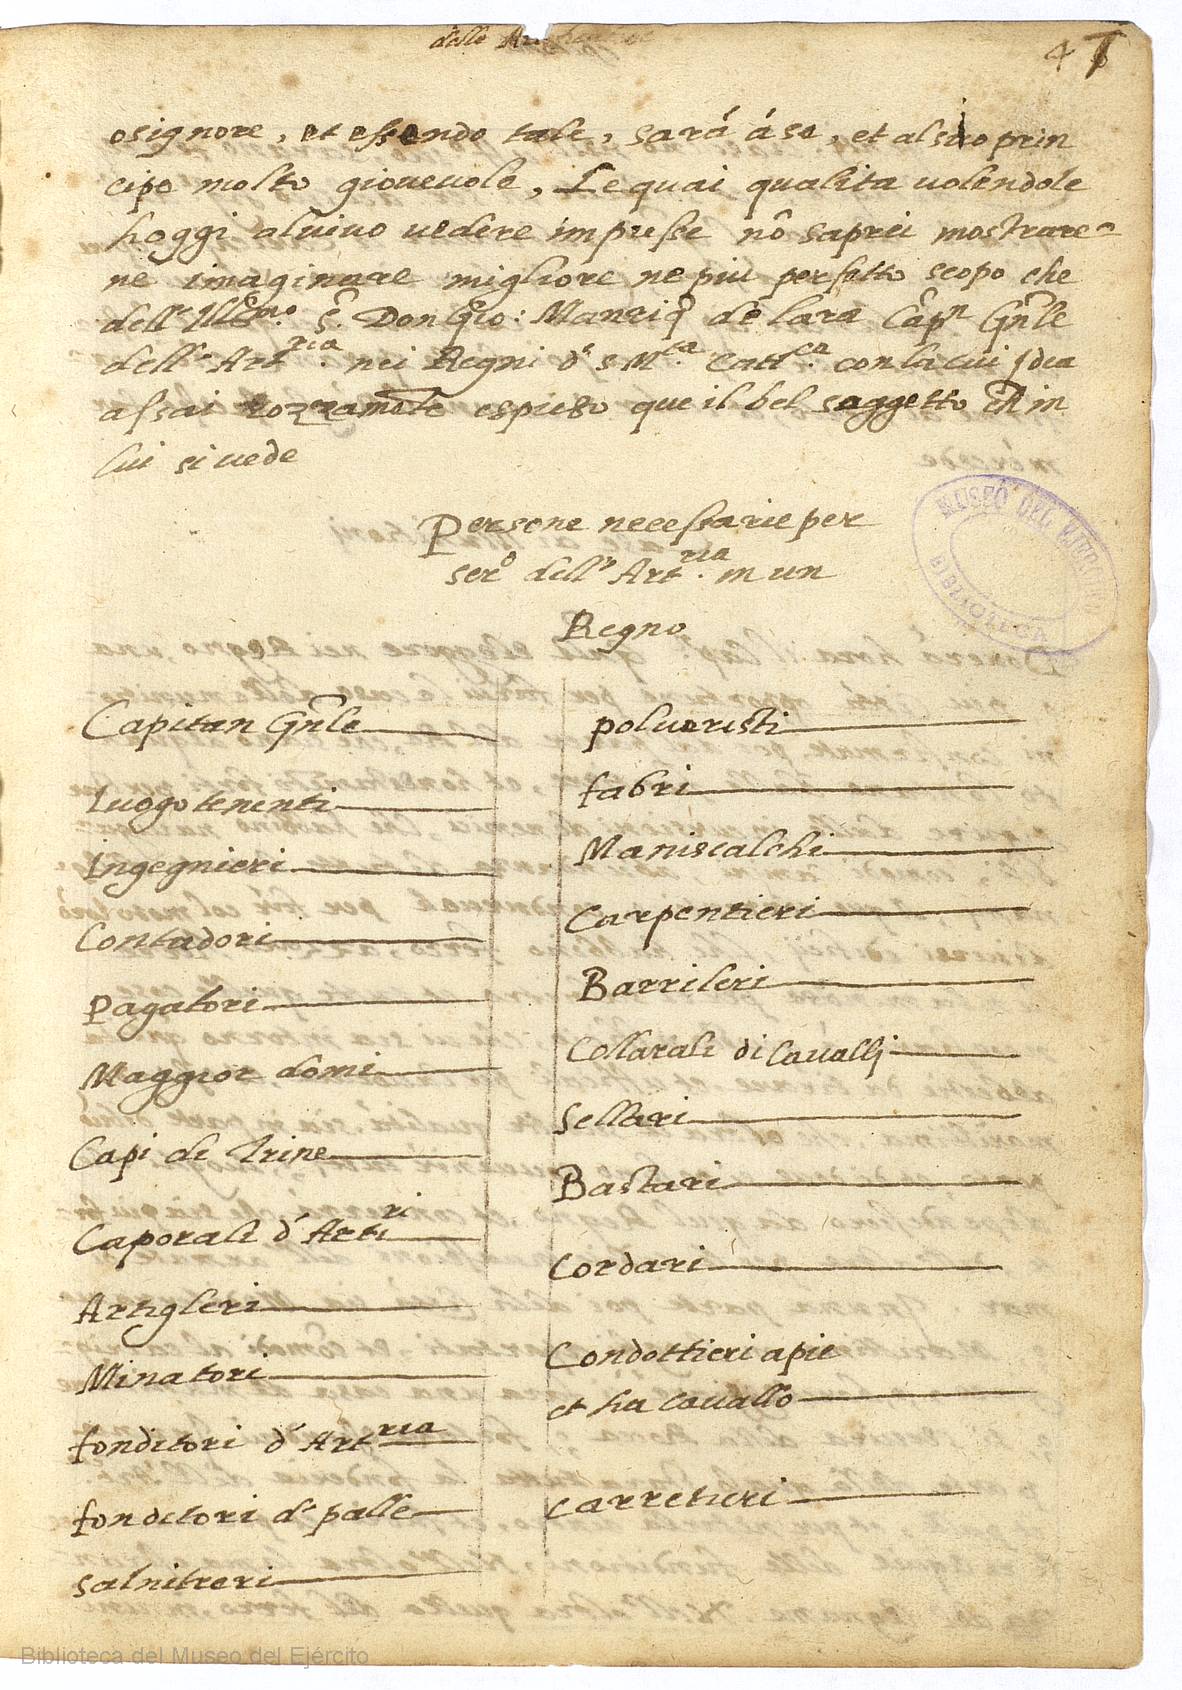 delle
47
osignore, et essendo tale, sará áse, et al suo prin
cipe molto giouevole, Le quai qualita uolendole
hoggi aluiuo uedere impresse nô saprei mostrare
ne imaginare migliore ne piu perfetto scopo che
dell' Illmo. S. Don Gio: Manriq de Lara Capn Gnle
dell' Artria. nei Regni d' S Mta. Cattca. con la cui Idea
assai rozzamête espiego que il bel soggetto ch in
lui si uede
Persone necessarie per
sero dell' Artria. in un
Regno
Capitan Gnle
Luogotenenti
Ingegnieri
Contadori
Pagatori
Maggior domi
Capi de Trine
Caporali d' Artiri
Artigleri
Minatori
fonditori d' Artria
fonditori d' palle
Salnitreri
polueristi
fabri
Maniscalchi
Carpentieri
Barrileri
Collarali di Caualli
Sellari
Bastari
Cordari
Condottieri a pie
et ha cauallo
Carretieri
MUSEO DEL EJERCITO
BIBLIOTECA
Biblioteca del Museo del Ejército